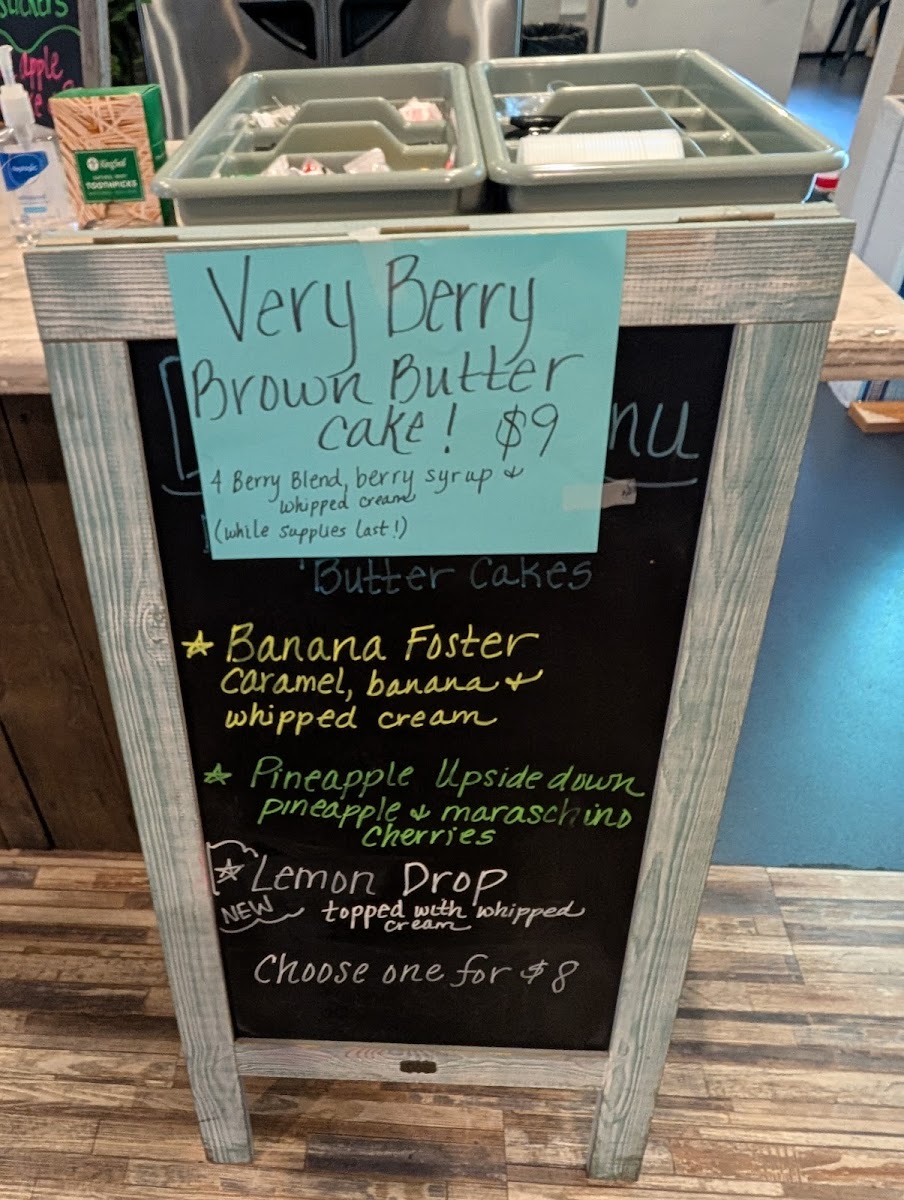 apple
KingSeal
TOOTHPICKS
Very Berry
Brown Butter
cake! $9
4 Berry Blend, berry syrup &
whipped cream
(while supplies last!)
nu
Butter Cakes
Banana Foster
caramel, banana &
whipped cream
Pineapple Upside down
pineapple & maraschino
cherries
Lemon Drop
NEW topped with whipped
cream
Choose one for $8